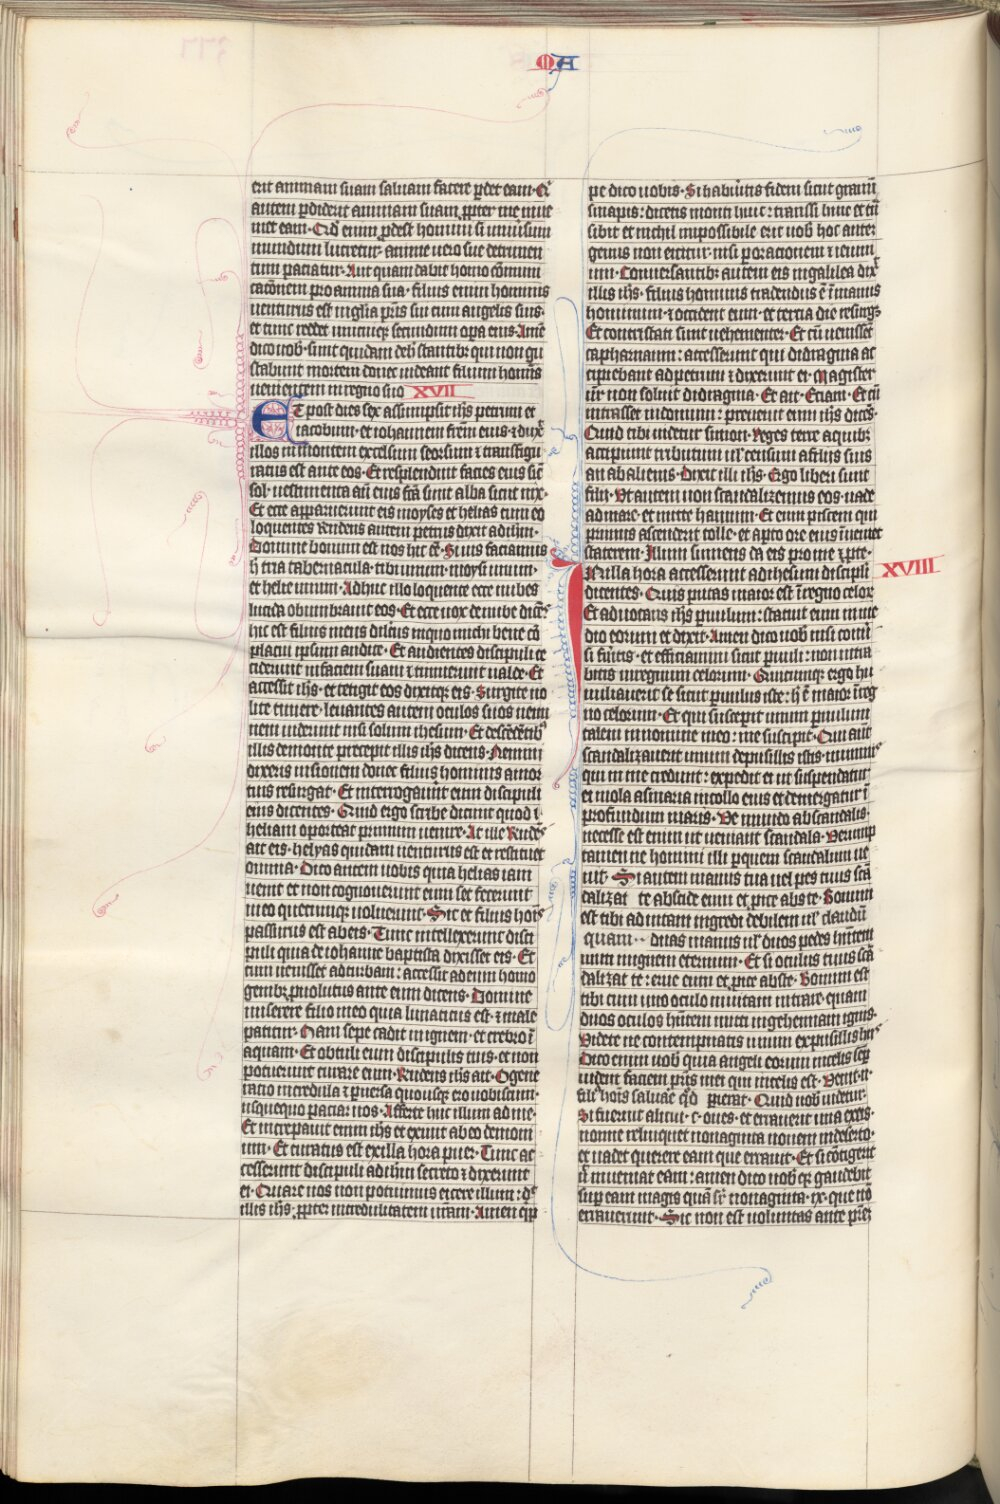 MA
erit animam suam saluam facere ꝑdet eam· Qͥ
autem ꝑdiderit animam suam ꝓpter me inue
niet eam· Qͥd enim ꝓdest homini si uniuersum
mundum lucretur· anime uero sue detrimen
tum paciatur· Aut quam dabit homo cōmuni
tacōnem pro anima sua· filius enim hominis
uenturus est in glia pr̄is sui cum angelis suis·
et tunc reddet unicuiqꝫ secundum opa eius· Amē
dico uob· sunt quidam de h̄ stantibꝫ qui non gu
stabunt mortem donec uideant filium homīs
uenientem in regno suo XVII
ET post dies sex assumpsit ihs petrum et
iacobum· et iohannem frēm eius· ⁊ duxͭ
illos in montem excelsum seorsum ⁊ transfigu
ratus est ante eos· Et resplenduit facies eius sic̄
sol· uestimenta aūt eius scā sunt alba sicut nix·
Et ecce apparuerunt eis moyses et helias cum eo
loquentes Rendens autem petrus dixit ad ihm·
Domine bonum est nos hic eē· Si uis faciamus
h̄ tria tabernacula· tibi unum· moysi unum·
et helie unum· Adhuc illo loquente ecce nubes
lucida obumbrauit eos· Et ecce uox de nube dicēs
hic est filius meus dilcūs in quo michi bene cō
placui ipsum audite· Et audientes discipuli ce
ciderunt in faciem suam ⁊ timuerunt ualde· Et
accessit ihs· et tetigit eos dixitqꝫ eis· Surgite no
lite timere· leuantes autem oculos suos nemi
nem uiderunt nisi solum ihesum· Et descēdētibꝫ
illis de monte precepit illis ihs dicens· Nemini
dixeris uisionem donec filius hominis a mor
tuis resurgat· Et interrogauerunt eum discipuli
eius dicentes· Quid ergo scribe dicunt quod
heliam oporteat primum uenire· At ille Rndēs
ait eis· helyas quidam uenturus est et restituet
omnia· Dico autem uobis quia helias iam
uenit et non cognouerunt eum sed fecerunt
in eo quecumqꝫ uoluerunt· Sic et filius hoīs
passurus est ab eis· Tunc intellexerunt disci
puli quia de iohanne baptista dixisset eis· Et
cum uenisset ad turbam: accessit ad eum homo
genibꝫ ꝓuolutus ante eum dicens· Domine
miserere filio meo quia lunaticus est· ⁊ male
patitur· Nam sepe cadit in ignem· et crebro ī
aquam· Et obtuli eum discipulis tuis· et non
potuerunt curare eum· Rndens ihs ait· O gene
ratio incredula ⁊ ꝑuersa quousqꝫ ero uobiscum·
usquequo paciar uos· Afferte huc illum ad me·
Et increpauit eum ihs et exiuit ab eo demoni
um· Et curatus est ex illa hora puer· Tunc ac
cesserunt discipuli ad ihm secreto ⁊ dixerunt
ei· Quare nos non potuimus eicere illum: dͭ
illis ihs· ꝓpter incredulitatem uram· Amen qꝑ
pe dico uobis· Si habūitis fidem sicut granū
sinapis: dicetis monti huic: transi hinc et trā
sibit et nichil impossibile erit uob hoc autem
genus non eicitur· nisi per orationem ⁊ ieiuni
um· Conuersantibꝫ autem eis in galilea dixͭ
illis ihs· filius hominis tradendus ē ī manus
hominum· ⁊ occident eum· et tercia die resurgͭ
Et contristati sunt uehementer· Et cū uenisset
capharnaum: accesserunt qui didragma ac
cipiebant ad petrum ⁊ dixerunt ei· Magister
ur̄ non soluit didragma· Et ait· Eciam· Et cū
intrasset in domum: preuenit eum ihs dicēs·
Quid tibi uidetur simon· Reges terre a quibꝫ
accipiunt tributum ul' censum a filiis suis
an ab alienis· Dixit illi ihs· Ergo liberi sunt
filii· Vt autem non scandalizemus eos· uade
ad mare· et mitte hamum· Et eum piscem qui
primus ascenderit tolle· et apto ore eius inuenies
staterem· Illum sumens da eis pro me ⁊ pte·
In illa hora accesserunt ad ihesum discipuli XVIII
dicentes· Quis putas maior est ī regno celoꝝ
Et aduocans ihs ꝑuulum: statuit eum in me
dio eorum et dixit· Amen dico uob nisi conūsi
si fūitis· et efficiamini sicut ꝑuuli: non intra
bitis in regnum celorum· Quicumqꝫ ergo hu
miliauerit se sicut ꝑuulus iste: h̄ ē maior ī reg
no celorum· Et qui susceperit unum ꝑuulum
talem in nomine meo: me suscipit· Qui aūt
scandalizauerit unum de pusillis istis
qui in me credunt: expedit ei ut suspendatur
ei mola asinaria in collo eius et demergatur ī
profundum maris· Ve mundo ab scandalis·
necesse est enim ut ueniant scandala· Verump
tamen ue homini illi ꝑ quem scandalum ue
nit· Si autem manus tua uel pes tuus scā
dalizat te abscide eum et ꝓice abs te· Bonum
est tibi ad uitam ingredi debilem ul' claudū
quam duas manus ul' duos pedes hn̄tem
mitti in ignem eternum· Et si oculus tuus scā
dalizat te: erue eum et ꝓice abs te· Bonum est
tibi cum uno oculo in uitam intrare· quam
duos oculos hn̄tem mitti in gehennam ignis·
Videte ne contempnatis unum ex pusillis hiis
Dico enim uob quia angeli eorum in celis semꝑ
uident faciem pr̄is mei qui in celis est· Venit·n·
fili' hoīs saluāe qͦd ꝑierat· Quid uob uidetur·
Si fuerint alicui ·c· oues· et errauerit una ex eis·
nonne relinquet nonaginta nouem in deserto·
et uadet querere eam que errauit· Et si cōtigerit
ut inueniat eam: amen dico uob qꝫ gaudebit
suꝑ eam magis quā sꝑ nonaginta·ix· que nō
errauerunt· Sic non est uoluntas ante pr̄em